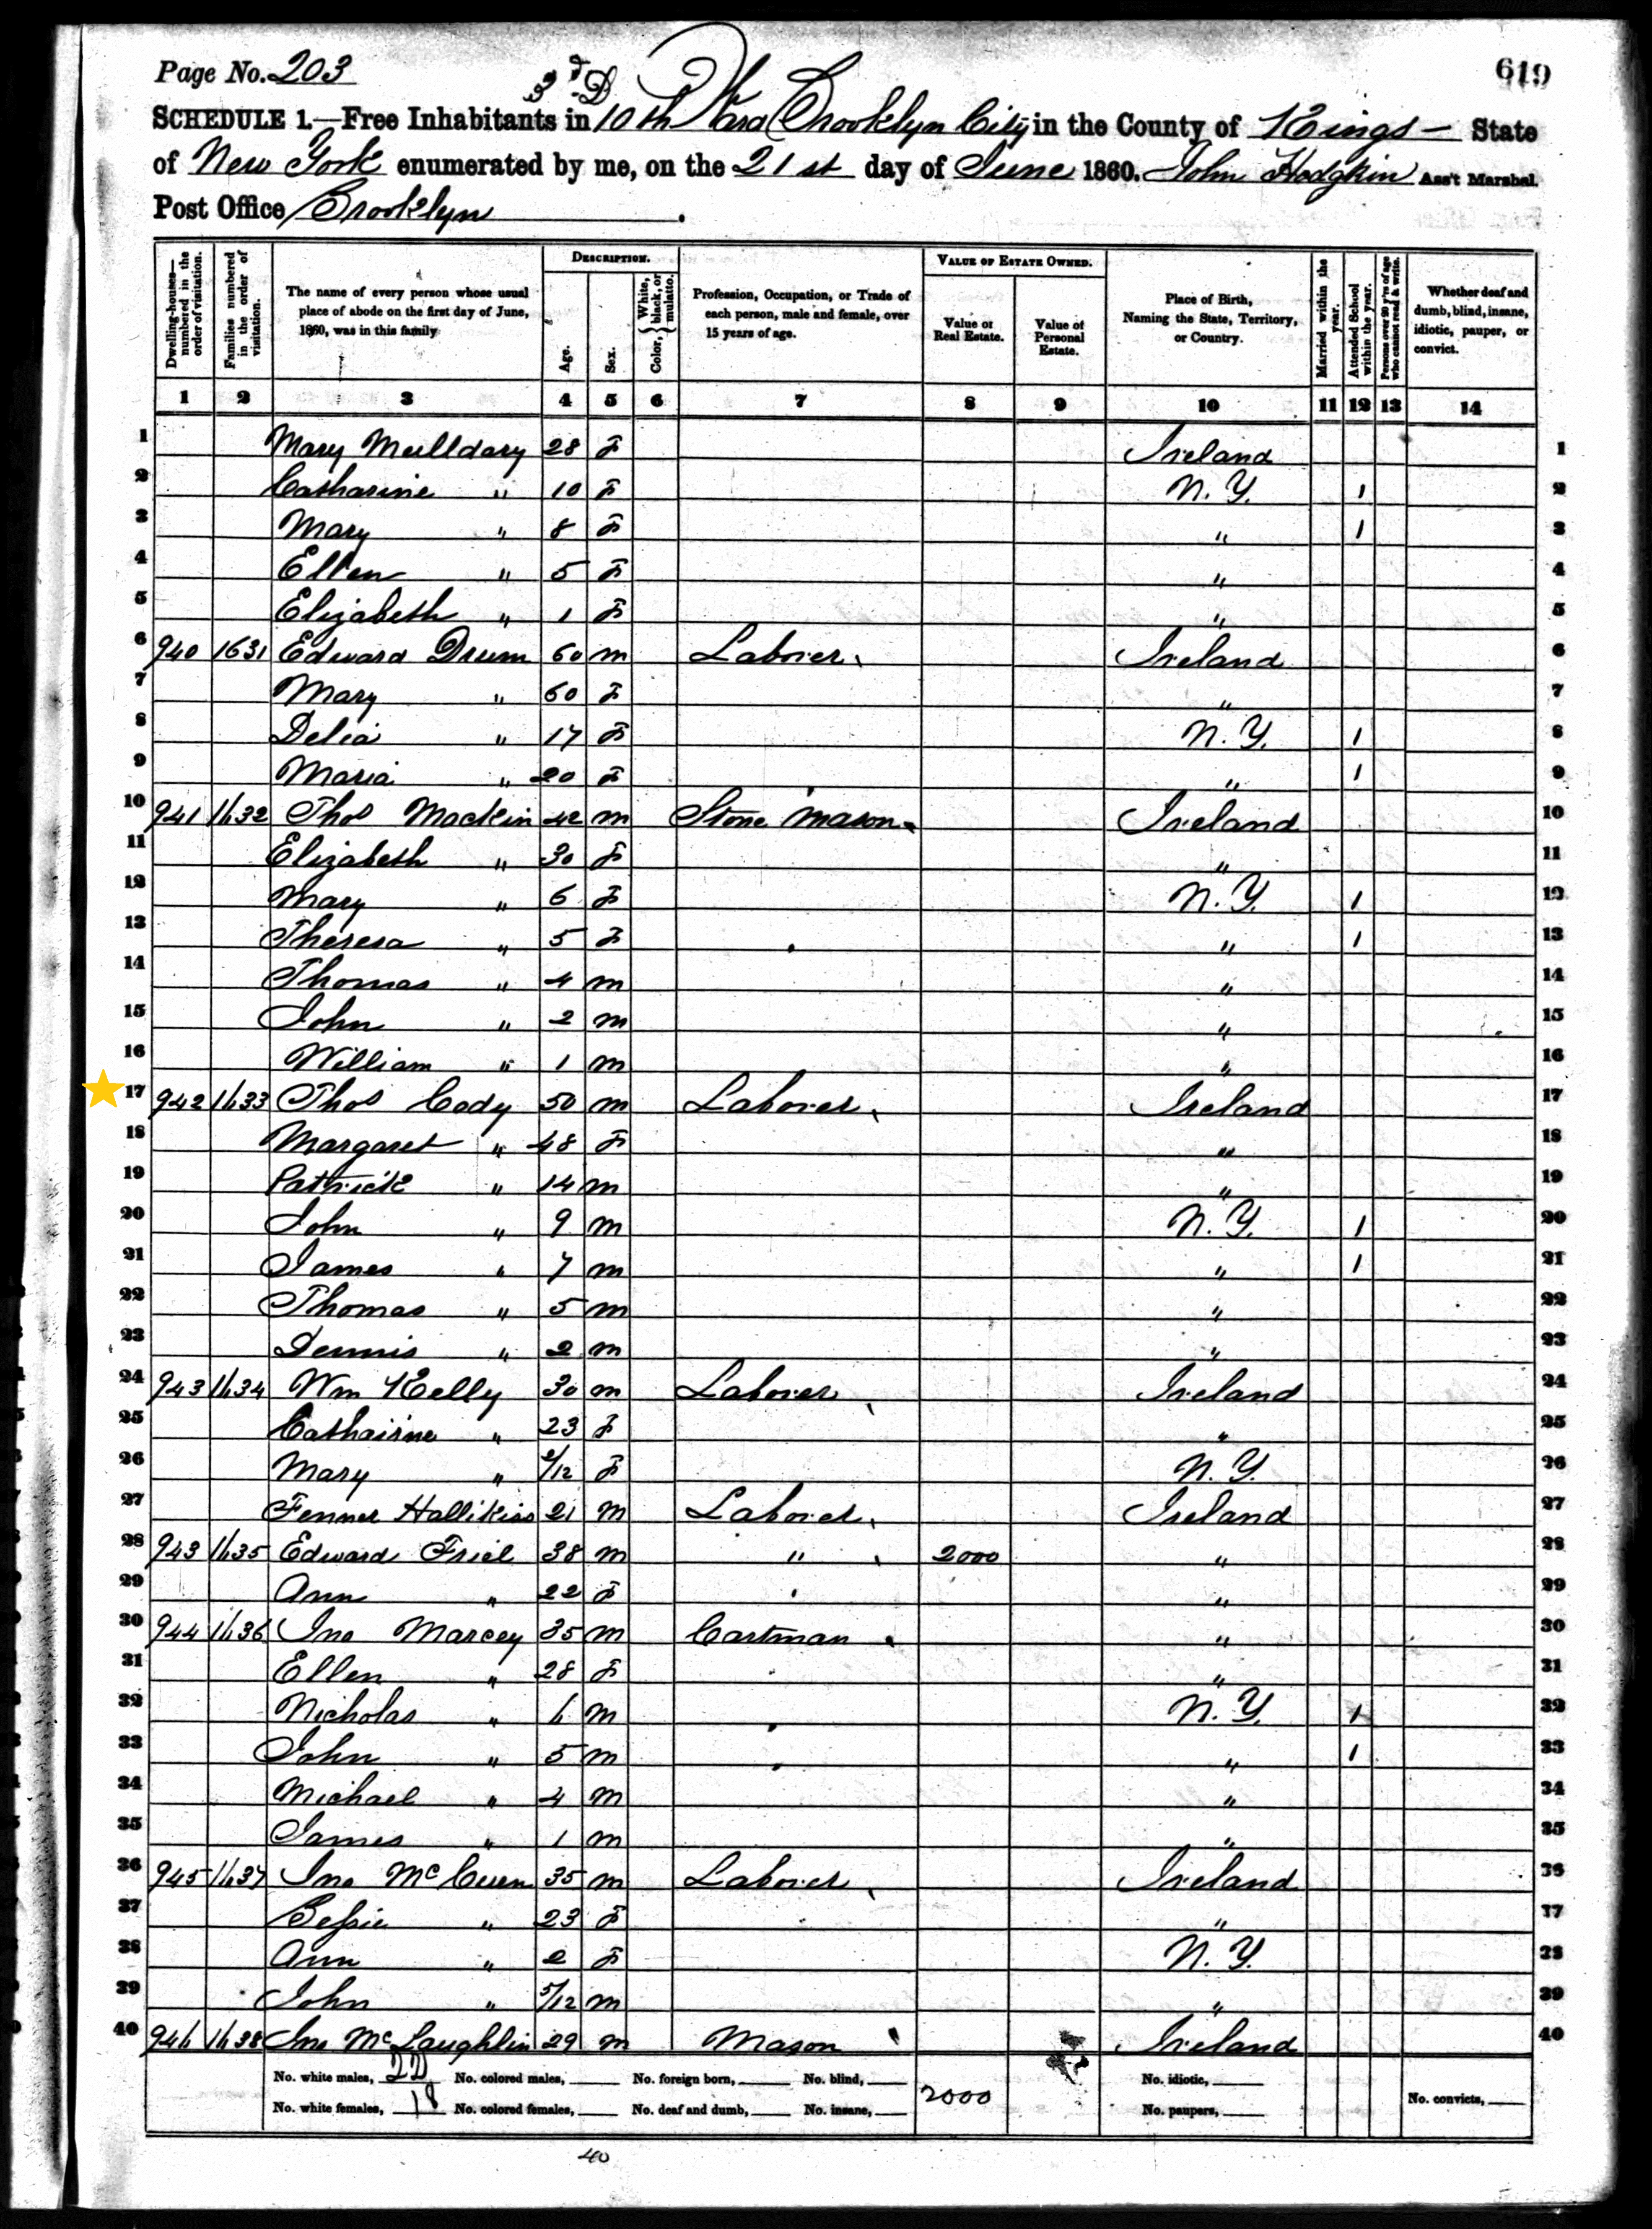 Page No. 203
619
3d D
SCHEDULE 1.—Free Inhabitants in 10th Ward Brooklyn City in the County of Kings — State
of New York enumerated by me, on the 21st day of June 1860. John Hodgkin Ass't Marshal.
Post Office Brooklyn.
Dwelling-houses—numbered in the order of visitation. Families numbered in the order of visitation. The name of every person whose usual place of abode on the first day of June, 1860, was in this family DESCRIPTION. Age. Sex. Color, White, black, or mulatto. Profession, Occupation, or Trade of each person, male and female, over 15 years of age. VALUE OF ESTATE OWNED. Value of Real Estate. Value of Personal Estate. Place of Birth, Naming the State, Territory, or Country. Married within the year. Attended School within the year. Persons over 20 y'rs of age who cannot read & write. Whether deaf and dumb, blind, insane, idiotic, pauper, or convict.
1 2 3 4 5 6 7 8 9 10 11 12 13 14
1 Mary Mulldary 28 F Ireland 1
2 Catharine " 10 F N.Y. 1 2
3 Mary " 8 F " 1 3
4 Ellen " 5 F " 4
5 Elizabeth " 1 F " 5
6 940 1631 Edward Drum 60 m Laborer Ireland 6
7 Mary " 60 F " 7
8 Delia " 17 F N.Y. 1 8
9 Maria " 20 F " 1 9
10 941 1632 Thos Mackin 42 m Stone Mason Ireland 10
11 Elizabeth " 30 F " 11
12 Mary " 6 F N.Y. 1 12
13 Theresa " 5 F " 1 13
14 Thomas " 4 m " 14
15 John " 2 m " 15
16 William " 1 m " 16
17 942 1633 Thos Cody 50 m Laborer Ireland 17
18 Margaret " 48 F " 18
19 Patrick " 14 m " 19
20 John " 9 m N.Y. 1 20
21 James " 7 m " 1 21
22 Thomas " 5 m " 22
23 Dennis " 2 m " 23
24 943 1634 Wm Kelly 30 m Laborer Ireland 24
25 Cathairine " 23 F " 25
26 Mary " /12 F N.Y. 26
27 Fenner 21 m Laborer Ireland 27
28 943 1635 Edward Friel 38 m " 2000 " 28
29 Ann " 22 F " 29
30 944 1636 Jno Marcey 35 m Cartman " 30
31 Ellen " 28 F " 31
32 Nicholas " 6 m N.Y. 1 32
33 John " 5 m " 1 33
34 Michael " 4 m " 34
35 James " 1 m " 35
36 945 1637 Jno McCuen 35 m Laborer Ireland 36
37 Bessie " 23 F " 37
38 Ann " 2 F N.Y. 38
39 John " 5/12 m " 39
40 946 1638 Jno McLaughlin 29 m Mason Ireland 40
No. white males, 22 No. colored males, No. foreign born, No. blind, 2000 No. idiotic,
No. white females, 18 No. colored females, No. deaf and dumb, No. insane, No. paupers, No. convicts,
40